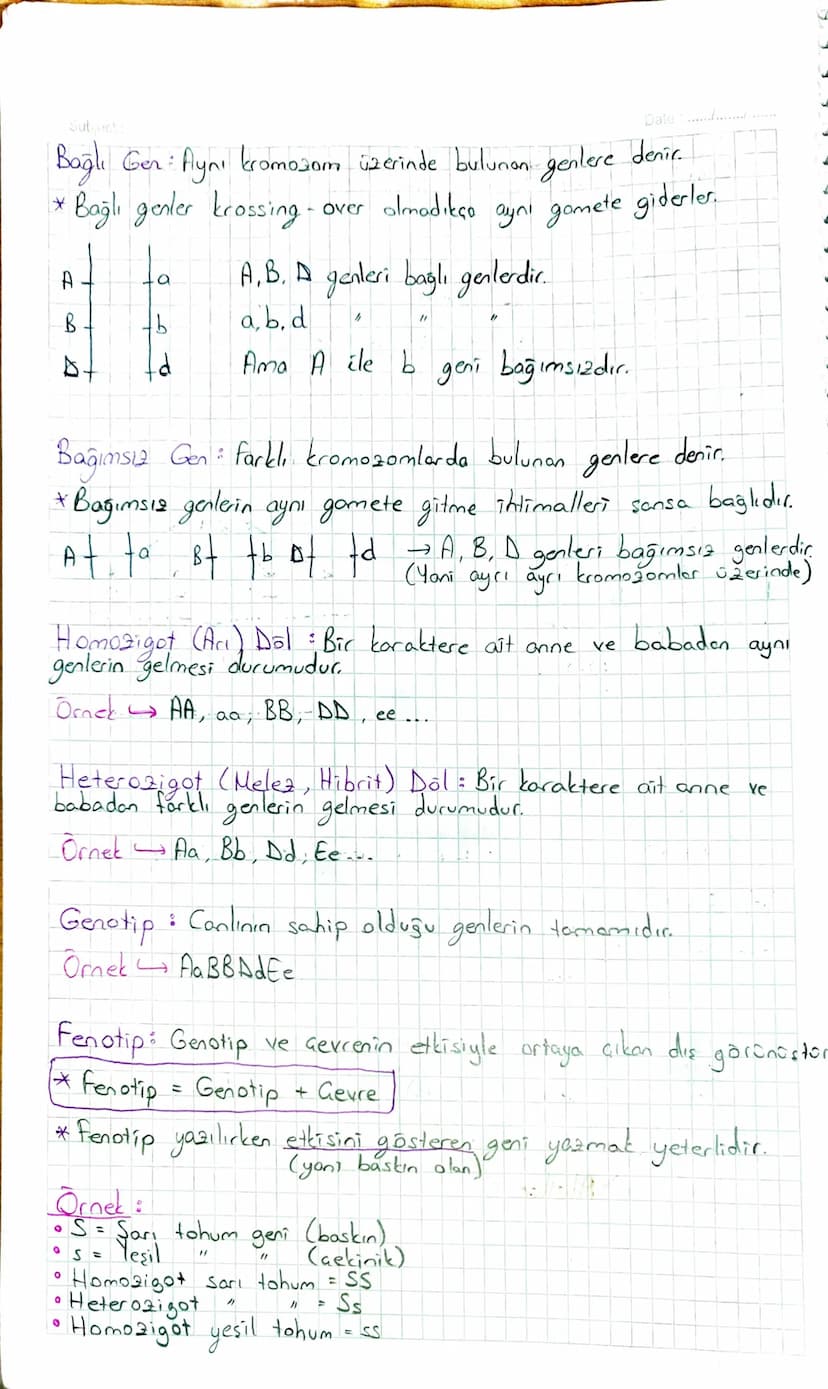 Subject:
Date : ....../....../......
Bağlı Gen : Aynı kromozom üzerinde bulunan genlere denir.
* Bağlı genler krossing-over olmadıkça aynı gamete giderler.
A a A, B, D genleri bağlı genlerdir.
B b a, b, d " " "
D d Ama A ile b geni bağımsızdır.
Bağımsız Gen : Farklı kromozomlarda bulunan genlere denir.
* Bağımsız genlerin aynı gamete gitme ihtimalleri şansa bağlıdır.
A a B b D d → A, B, D genleri bağımsız genlerdir
(Yani ayrı ayrı kromozomlar üzerinde)
Homozigot (Arı) Döl : Bir karaktere ait anne ve babadan aynı
genlerin gelmesi durumudur.
Örnek ↪ AA, aa, BB, DD, ee ...
Heterozigot (Melez, Hibrit) Döl : Bir karaktere ait anne ve
babadan farklı genlerin gelmesi durumudur.
Örnek ↪ Aa, Bb, Dd, Ee ...
Genotip : Canlının sahip olduğu genlerin tamamıdır.
Örnek ↪ AaBBDdEe
Fenotip : Genotip ve çevrenin etkisiyle ortaya çıkan dış görünüştür
* Fenotip = Genotip + Çevre
* Fenotip yazılırken etkisini gösteren geni yazmak yeterlidir.
(yani baskın olan)
Örnek :
• S = Sarı tohum geni (baskın)
• s = Yeşil " " (çekinik)
• Homozigot sarı tohum = SS
• Heterozigot " " = Ss
• Homozigot yeşil tohum = ss